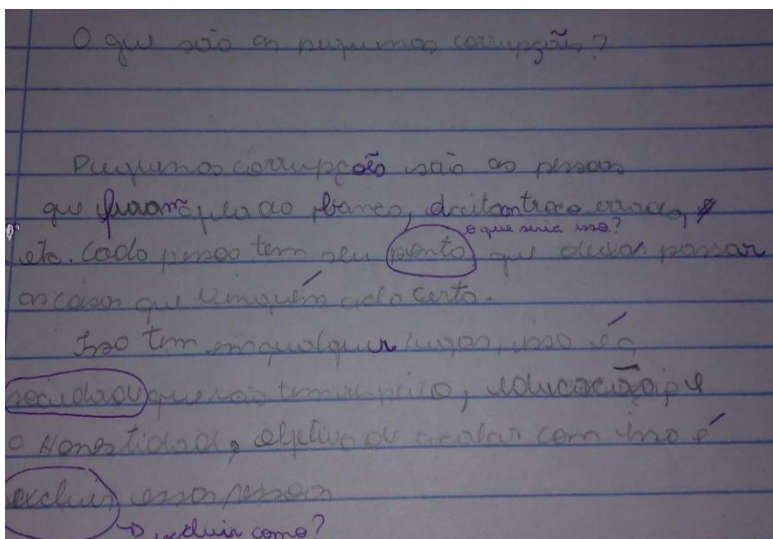 O que são as pequenas corrupções?
Pequenas corrupções são as pessoas
que furam fila do banco, aceitam troco errado, e
o que seria isso?
etc. Cada pessoa tem seu ponto que deixas passar
as coisas que ninguém acha certo.
Isso tem em qualquer lugar, isso é a
sociedade que não tem respeito, educação e
a honestidade, objetivo de acabar com isso é
excluir essas pessoas
excluir como?